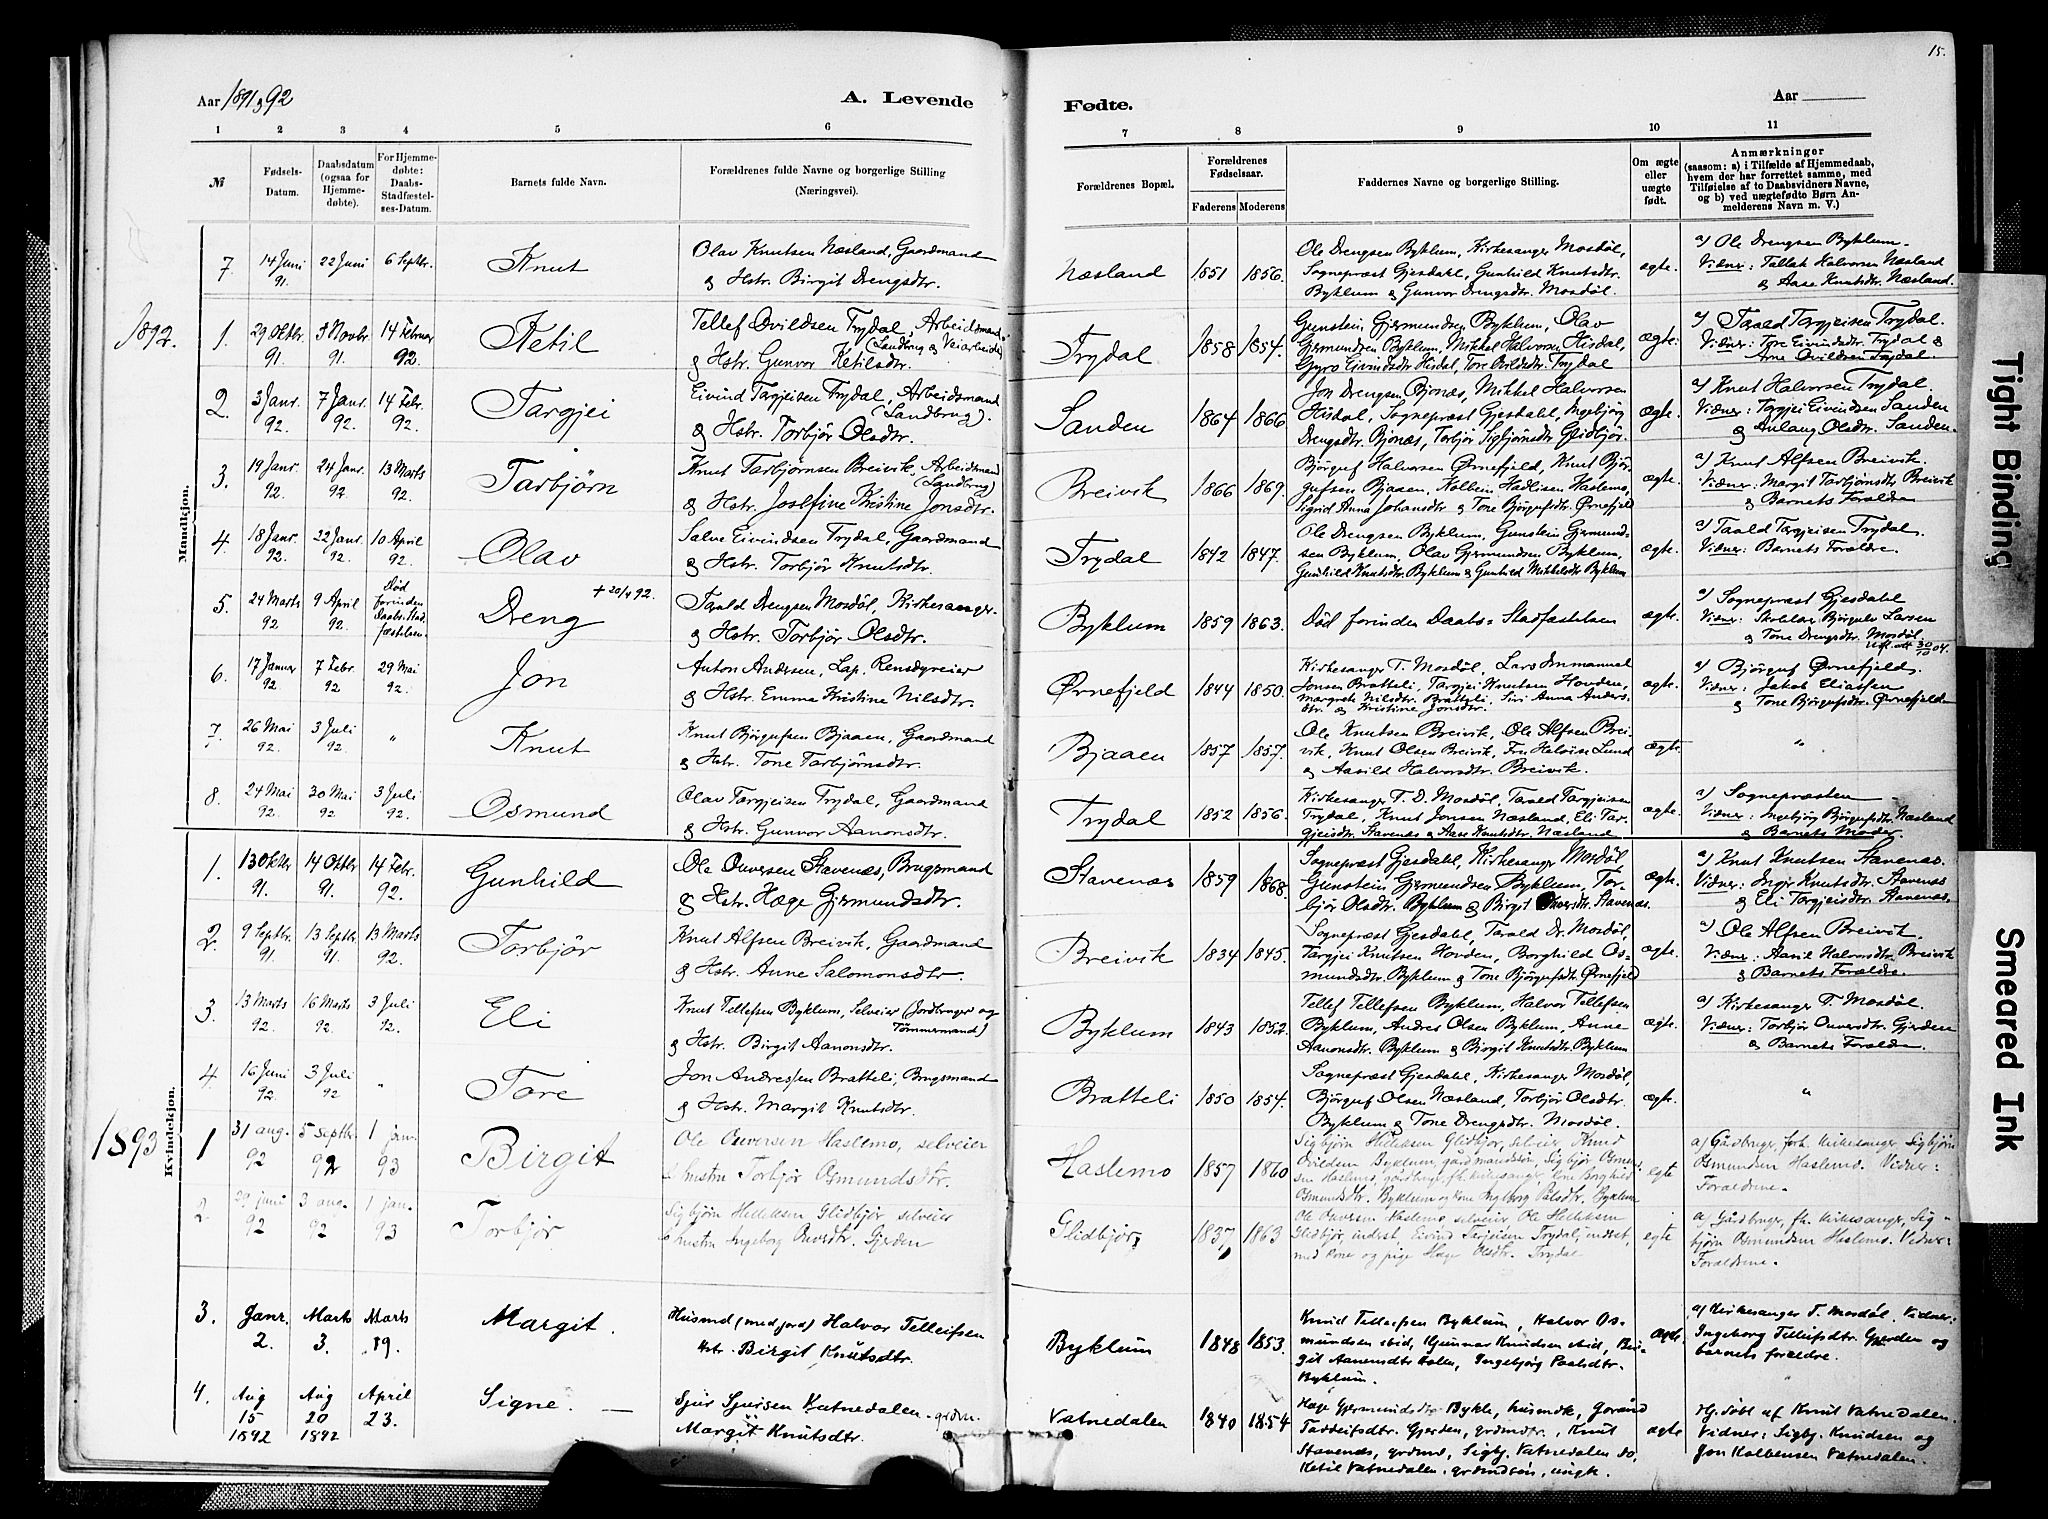 15.
Aar 1891 & 92
A. Levende
Fødte.
Aar
1 2 3 4 5 6 7 8 9 10 11
№
Fødsels-
Datum.
Daabsdatum
(ogsaa for
Hjemme-
døbte).
For Hjemme-
døbte:
Daabs-
Stadfæstel-
ses-Datum.
Barnets fulde Navn.
Forældrenes fulde Navne og borgerlige Stilling
(Næringsvei).
Forældrenes Bopæl.
Forældrenes
Fødselsaar.
Faderens Moderens
Faddernes Navne og borgerlige Stilling.
Om ægte
eller
uægte
født.
Anmærkninger
(saasom: a) i Tilfælde af Hjemmedaab,
hvem der har forrettet samme, med
Tilføielse af to Daabsvidners Navne,
og b) ved uægtefødte Børn An-
melderens Navn m. V.)
Mandkjøn.
7. 14 Juni 91. 22 Juni 6 Septbr. Knut
Olav Knutsen Næsland, Gaardmand
& Hstr. Birgit Drengsdtr.
Næsland 1851 1856.
Ole Drengsen Byklum, Kirkesanger Mosdøl,
Sognepræst Gjesdahl, Gunhild Knutsdtr.
Byklum & Gunvor Drengsdtr. Mosdøl.
ægte.
a) Ole Drengsen Byklum.
Vidner: Tallak Halvorsen Næsland
& Aase Knutsdtr. Næsland.
1892.
1. 29 Oktbr. 91. 3 Novbr. 91. 14 Februar 92. Ketil
Tellef Ovildsen Trydal, Arbeidsmand
(Landbrug & Veiarbeide)
& Hstr. Gunvor Ketilsdtr.
Trydal 1858 1854.
Gunstein Gjermundsen Byklum, Olav
Gjermundsen Byklum, Mikkel Halvorsen Hisdal,
Gyro Eivindsdtr Hisdal, Tore Ovildsdtr. Trydal
ægte.
a) Taald Targjeisen Trydal.
Vidner: Tore Eivindsdtr. Trydal &
Arne Ovildsen Trydal.
2. 3 Janr. 92. 7 Janr. 92. 14 Febr. 92. Targjei
Eivind Targjeisen Trydal, Arbeidsmand
(Landbrug).
& Hstr. Torbjør Olsdtr.
Sanden 1864 1866
Jon Drengsen Bjønæs, Mikkel Halvorsen
Hisdal, Sognepræst Gjesdahl, Ingebjørg
Drengsdtr. Bjønæs, Torbjør Sigbjørnsdtr Glidbjør.
ægte.
a) Knut Halvorsen Trydal.
Vidner: Targjei Eivindsen Sanden
& Anlaug Olsdtr. Sanden.
3. 19 Janr. 92. 24 Janr. 92. 13 Marts 92. Tarbjørn
Knut Tarbjørnsen Breivik, Arbeidsmand
(Landbrug)
& Hstr. Josefine Kristine Jonsdtr.
Breivik 1866 1869.
Bjørguf Halvorsen Ørnefjeld, Knut Bjør-
gufsen Bjaaen, Kolbein Hadlisen Haslemo,
Sigrid Anna Johansdtr & Tone Bjørgufsdtr. Ørnefjeld
ægte.
a) Knut Alfsen Breivik.
Vidner: Margit Tarbjørnsdtr Breivik
& Barnets Forældre
4. 18 Janr. 92. 22 Janr. 92. 10 April 92. Olav
Salve Eivindsen Trydal, Gaardmand
& Hstr. Torbjør Knutsdtr.
Trydal 1842 1847.
Ole Drengsen Byklum, Gunstein Gjermund-
sen Byklum, Olav Gjermundsen Byklum,
Gunhild Knutsdtr. Byklum & Gunhild Mikkelsdtr Byklum
ægte.
a) Taald Targjeisen Trydal.
Vidner: Barnets Forældre.
5. 24 Marts 92 9 April 92. Død
forinden
Daabs-Stad-
fæstelsen. Dreng + 20/4 92.
Taald Drengsen Mosdøl, Kirkesanger
& Hstr. Torbjør Olsdtr.
Byklum 1859 1863.
Død forinden Daabs-Stadfæstelsen
ægte.
a) Sognepræst Gjesdahl
Vidner: Skolelær. Bjørgulv Larsen
& Tone Drengsdtr. Mosdøl.
Utf. att 30/10 04.
6. 17 Januar 92 7 Febr. 92 29 Mai 92. Jon
Anton Andersen, Lap. Rensdyreier
& Hstr. Emma Kristine Nilsdtr.
Ørnefjeld 1844 1850.
Kirkesanger T. Mosdøl, Lars Immanuel
Jonsen Bratteli, Targjei Knutsen Hovden,
Margrete Nilsdtr. Bratteli, Siri Anna Anders-
dtr. & Kristine Jonsdtr.
ægte.
a) Bjørguf Ørnefjeld.
Vidner: Jakob Eliassen
& Tone Bjørgufsdtr. Ørnefjeld
7. 26 Mai 92. 3 Juli 92. " Knut
Knut Bjørgufsen Bjaaen, Gaardmand
& Hstr. Tone Tarbjørnsdtr.
Bjaaen 1857 1857.
Ole Knutsen Breivik, Ole Alfsen Brei-
vik, Knut Olsen Breivik, Fru Heloise Lund
& Aasild Halvorsdtr. Breivik.
ægte.
"
8. 24 Mai 92. 30 Mai 92. 3 Juli 92. Osmund
Olav Targjeisen Trydal, Gaardmand
& Hstr. Gunvor Aanonsdtr.
Trydal 1852 1856.
Kirkesanger T. D. Mosdøl, Tarald Targjeisen
Trydal, Knut Jonsen Næsland, Eli Tar-
gjeisdtr. Stavenæs & Aase Knutsdtr. Næsland
ægte.
a) Sognepræsten
Vidner: Ingebjørg Bjørgufsdtr. Næsland
& Barnets Moder.
Kvindekjøn.
1. 13 Oktbr 91. 14 Oktbr 91. 14 Febr. 92. Gunhild
Ole Onversen Stavenæs, Brugsmand
& Hstr. Hæge Gjermundsdtr.
Stavenæs 1859 1868.
Sognepræst Gjesdahl, Kirkesanger Mosdøl
Gunstein Gjermundsen Byklum, Tor-
bjør Olsdtr. Byklum & Birgit Onversdtr. Stavenæs.
ægte.
a) Knut Knutsen Stavenæs.
Vidner: Inger Knutsdtr. Stavenæs
& Eli Targjeisdtr. Stavenæs.
2. 9 Septbr. 91. 13 Septbr. 91. 13 Marts 92. Torbjør
Knut Alfsen Breivik, Gaardmand
& Hstr. Anne Salomonsdtr.
Breivik 1834 1845.
Sognepræst Gjesdahl, Tarald Dr. Mosdøl,
Targjei Knutsen Hovden, Borghild Os-
mundsdtr. Byklum & Tone Bjørgufsdtr. Ørnefjeld
ægte.
a) Ole Alfsen Breivik.
Vidner: Aasil Halvorsdtr. Breivik
& Barnets Forældre.
3. 13 Marts 92. 16 Marts 92. 3 Juli 92. Eli
Knut Tellefsen Byklum, Selveier (Jordbruger og
Tømmermand)
& Hstr. Birgit Aanonsdtr.
Byklum 1843 1852.
Tellef Tellefsen Byklum, Halvor Tellefsen
Byklum, Andres Olsen Byklum, Anne
Aanonsdtr. Byklum & Birgit Knutsdtr. Byklum
ægte.
a) Kirkesanger T. Mosdøl.
Vidner: Torbjør Onversdtr. Gjerden
& Barnets Forældre.
4 16 Juni 92. 3 Juli 92 " Tore
Jon Andressen Bratteli, Brugsmand
& Hstr. Margit Knutsdtr.
Bratteli 1850 1854.
Sognepræst Gjesdahl, Kirkesanger Mosdøl,
Bjørguf Olsen Næsland, Torbjør Olsdtr.
Byklum & Tone Drengsdtr. Mosdøl.
ægte.
"
1893
1 31 aug. 92 5 septbr 92 1 jan. 93 Birgit
Ole Onversen Haslemo, selveier
& hustru Torbjør Osmundsdtr.
Haslemo 1857 1860
Sigbjørn Helleksen Glidbjør, selveier Knud
Ovildsen Byklum, gårdmandssøn, Sigbjør Osmund-
sen Haslemo, gårdbruger, fh. kirkesanger, kone Borghild
Osmundsdtr. Byklum og kone Ingeborg Pålsdtr. Byklum
egte
a) Gårdbruger, forh. kirkesanger, Sigbjørn
Osmundsen Haslemo. Vidner:
Forældrene.
2. 29 juni 92 3 aug. 92 1 jan. 93 Torbjør
Sigbjørn Helleksen Glidbjør selveier
& hustru Ingeborg Onversdtr. Gjerden
Glidbjør 1837 1863
Ole Onversen Haslemo, selveier, Ole Helleksen
Glidbjør, inderst, Eivind Terjeisen Trydal, inderst,
med kone og pige Hæge Olsdtr. Trydal
egte
a) Gårdbruger, fh. kirkesanger, Sig-
bjørn Osmundsen Haslemo. Vidner:
Forældrene.
3. Janr. 2. Marts 3. Marts 19. Margit.
Husmd (med jord) Halvor Tellefsen
Hstr. Birgit Knutsdtr.
Byklum 1848 1853.
Knud Tellefsen Byklum, Halvor Os-
mundsen ibid, Gunnar Knudsen ibid, Bir-
git Aanensdtr Holen, Ingebjørg Paalsdtr.
Byklum.
ægte.
a) Kirkesanger T. Mosdøl. Vidner:
Ingeborg Tellefsdtr. Gjerden og
barnets forældre.
4. Aug 15 1892 Aug 20 1892 April 23. Signe. —
Sjur Sjursen Vatnedalen, grdm.
Margit Knutsdtr.
Vatnedalen 1840 1854
Hæge Gjermundsdtr Bykle, husmdk,
Taddeifsdtr. Gjerden, grdmdtr., Knut
Stavenæs, grdmd, Sigbj. Vatnedalen do,
Ketil Vatnedalen, grdmdsøn, ungk.
ægte
Hj. døbt af Knut Vatnedalen.
Vidner: Sigbj. Knudsen og
Jon Kolbensen Vatnedalen.
Tight Binding
Smeared Ink